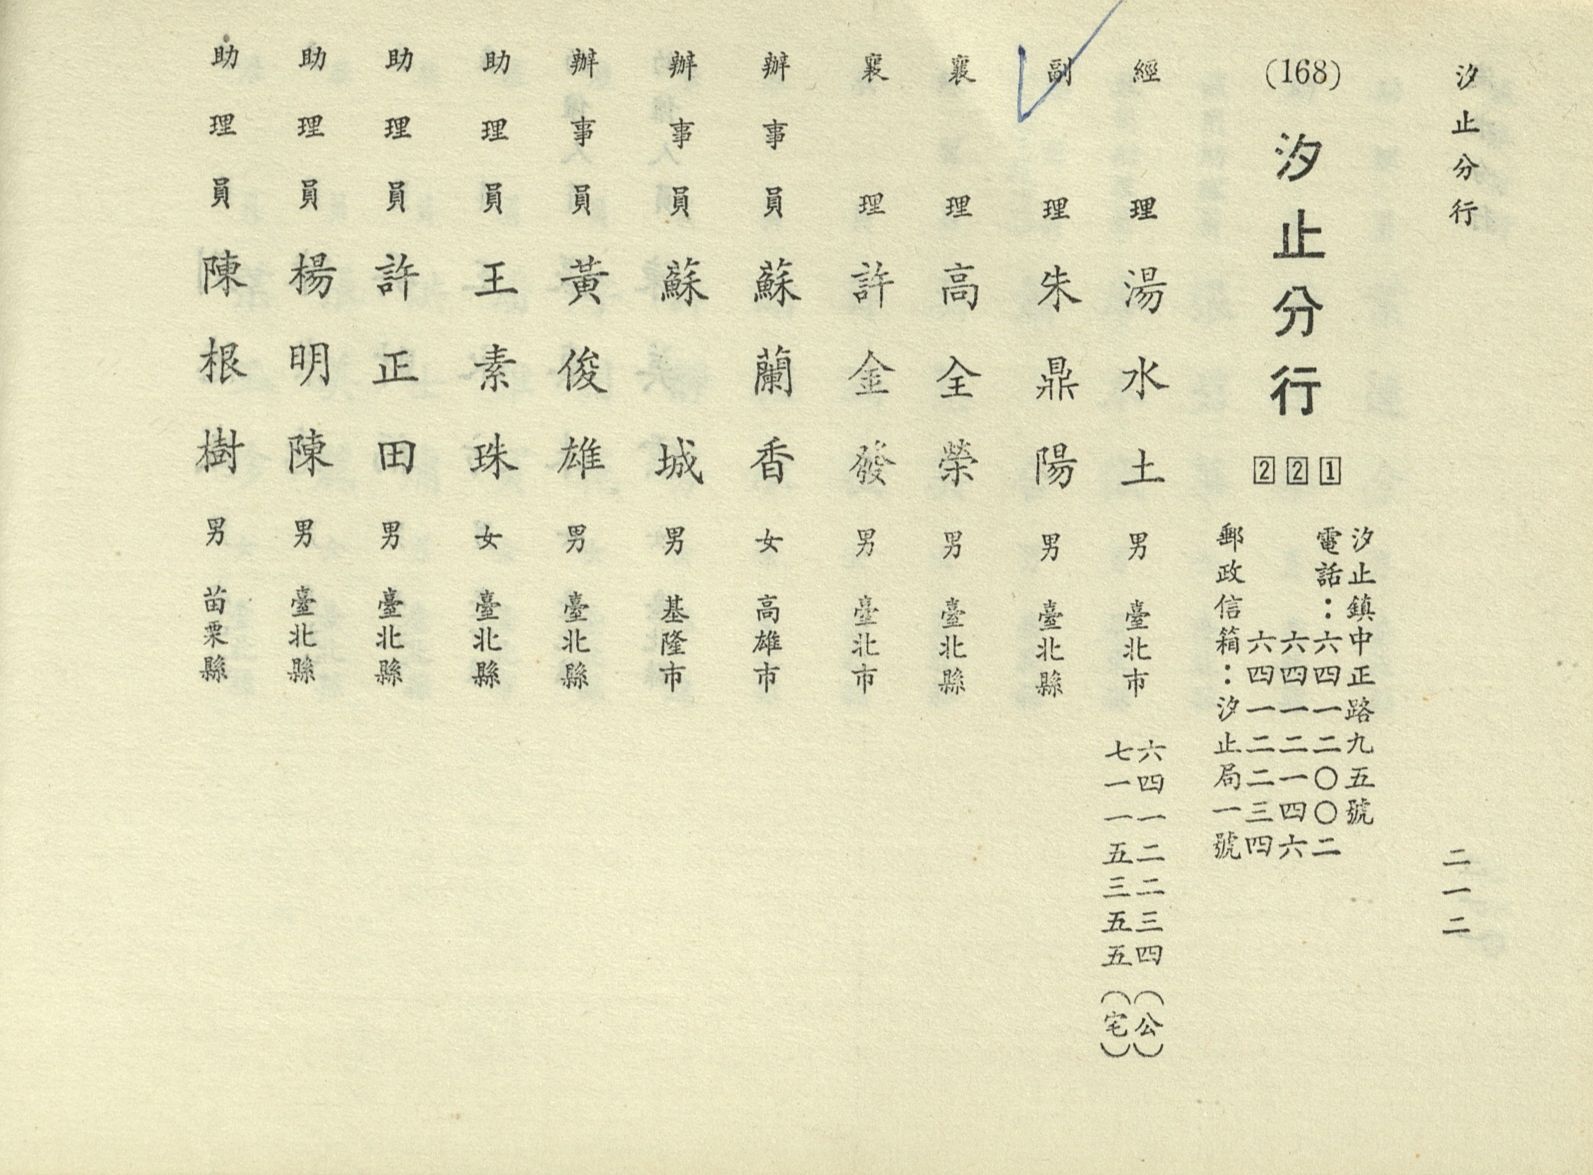 汐止分行
二一二
(168)
汐止分行
221
汐止鎮中正路九五號
電話：六四一二〇〇二
六四一二一四六
六四一二二三四
郵政信箱：汐止局一號
經理 湯水土 男 臺北市 六四一二二三四（公）
七一一五三五五（宅）
副理 朱鼎陽 男 臺北縣
襄理 高全榮 男 臺北縣
襄理 許金發 男 臺北市
辦事員 蘇蘭香 女 高雄市
辦事員 蘇城 男 基隆市
辦事員 黃俊雄 男 臺北縣
助理員 王素珠 女 臺北縣
助理員 許正田 男 臺北縣
助理員 楊明陳 男 臺北縣
助理員 陳根樹 男 苗栗縣